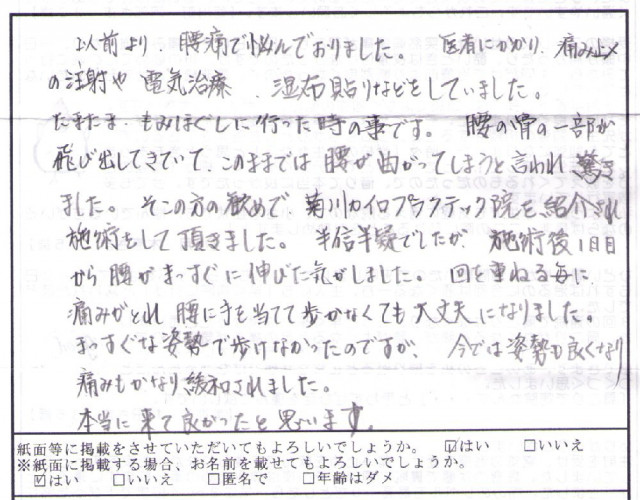 以前より、腰痛で悩んでおりました。 医者にかかり、痛み止め
の注射や 電気治療、湿布貼りなどをしていました。
たまたま、もみほぐしに行った時の事です。 腰の骨の一部が
飛び出してきていて、このままでは 腰が曲がってしまうと言われ 驚き
ました。そこの方の勧めで、菊川カイロプラクテック院を紹介され
施術をして頂きました。半信半疑でしたが、施術後1日目
から腰がまっすぐに伸びた気がしました。 回を重ねる毎に、
痛みがとれ 腰に手を当てて歩かなくても大丈夫になりました。
まっすぐな姿勢で歩けなかったのですが、 今では姿勢も良くなり
痛みもかなり緩和されました。
本当に来て良かったと思います。
紙面等に掲載をさせていただいてもよろしいでしょうか。 ☑はい □いいえ
※紙面に掲載する場合、お名前を載せてもよろしいでしょうか。
☑はい □いいえ □匿名で □年齢はダメ